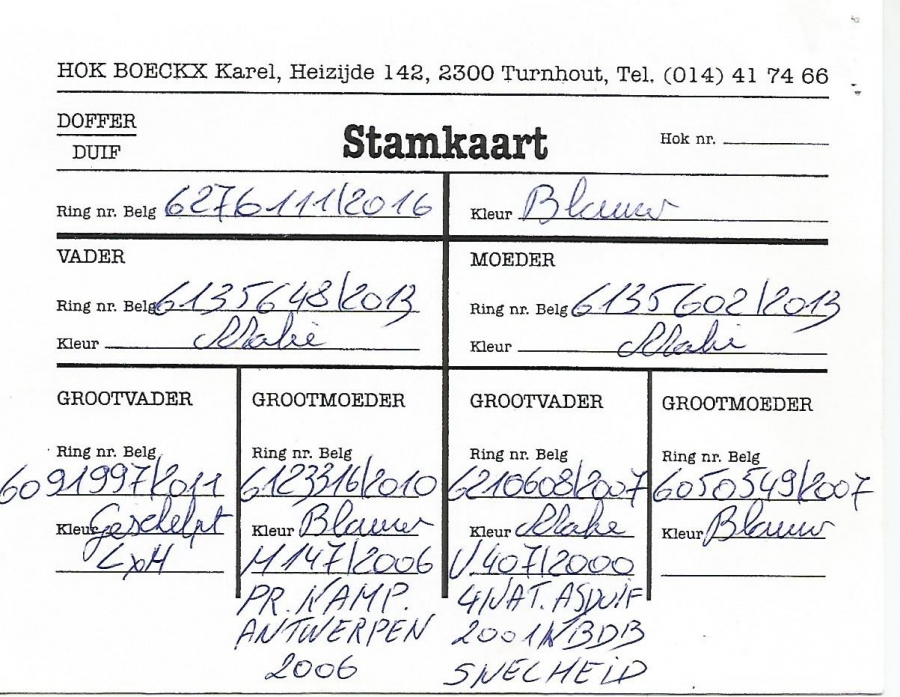 HOK BOECKX Karel, Heizijde 142, 2300 Turnhout, Tel. (014) 41 74 66
DOFFER
DUIF
Stamkaart
Hok nr.
Ring nr. Belg 6276111/2016
Kleur Blauw
VADER
Ring nr. Belg 6135648/2013
Kleur
MOEDER
Ring nr. Belg 6135602/2013
Kleur
GROOTVADER
Ring nr. Belg
6091997/2011
Kleur Geschelpt
LxH
GROOTMOEDER
Ring nr. Belg
6123316/2010
Kleur Blauw
M 147/2006
PR. KAMP.
ANTWERPEN
2006
GROOTVADER
Ring nr. Belg
6210608/2007
Kleur
V 407/2000
4/NAT. ASDUIF
2001 KBDB
SNELHEID
GROOTMOEDER
Ring nr. Belg
6050549/2007
Kleur Blauw